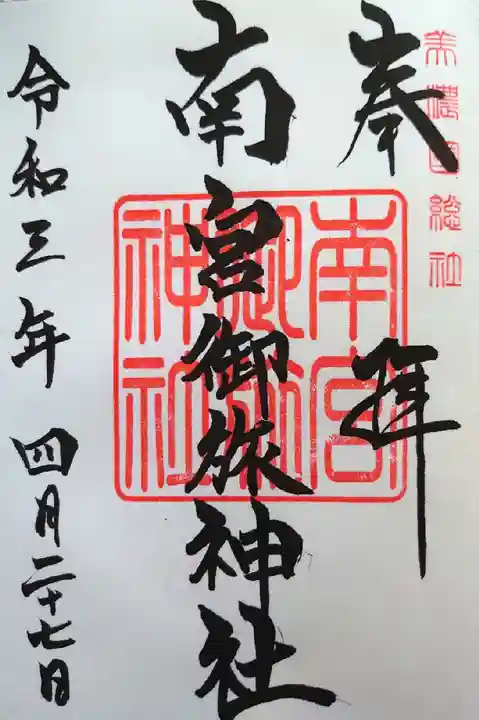 美濃国総社
奉拝
南宮御旅神社
南宮御旅神社
令和三年四月二十七日